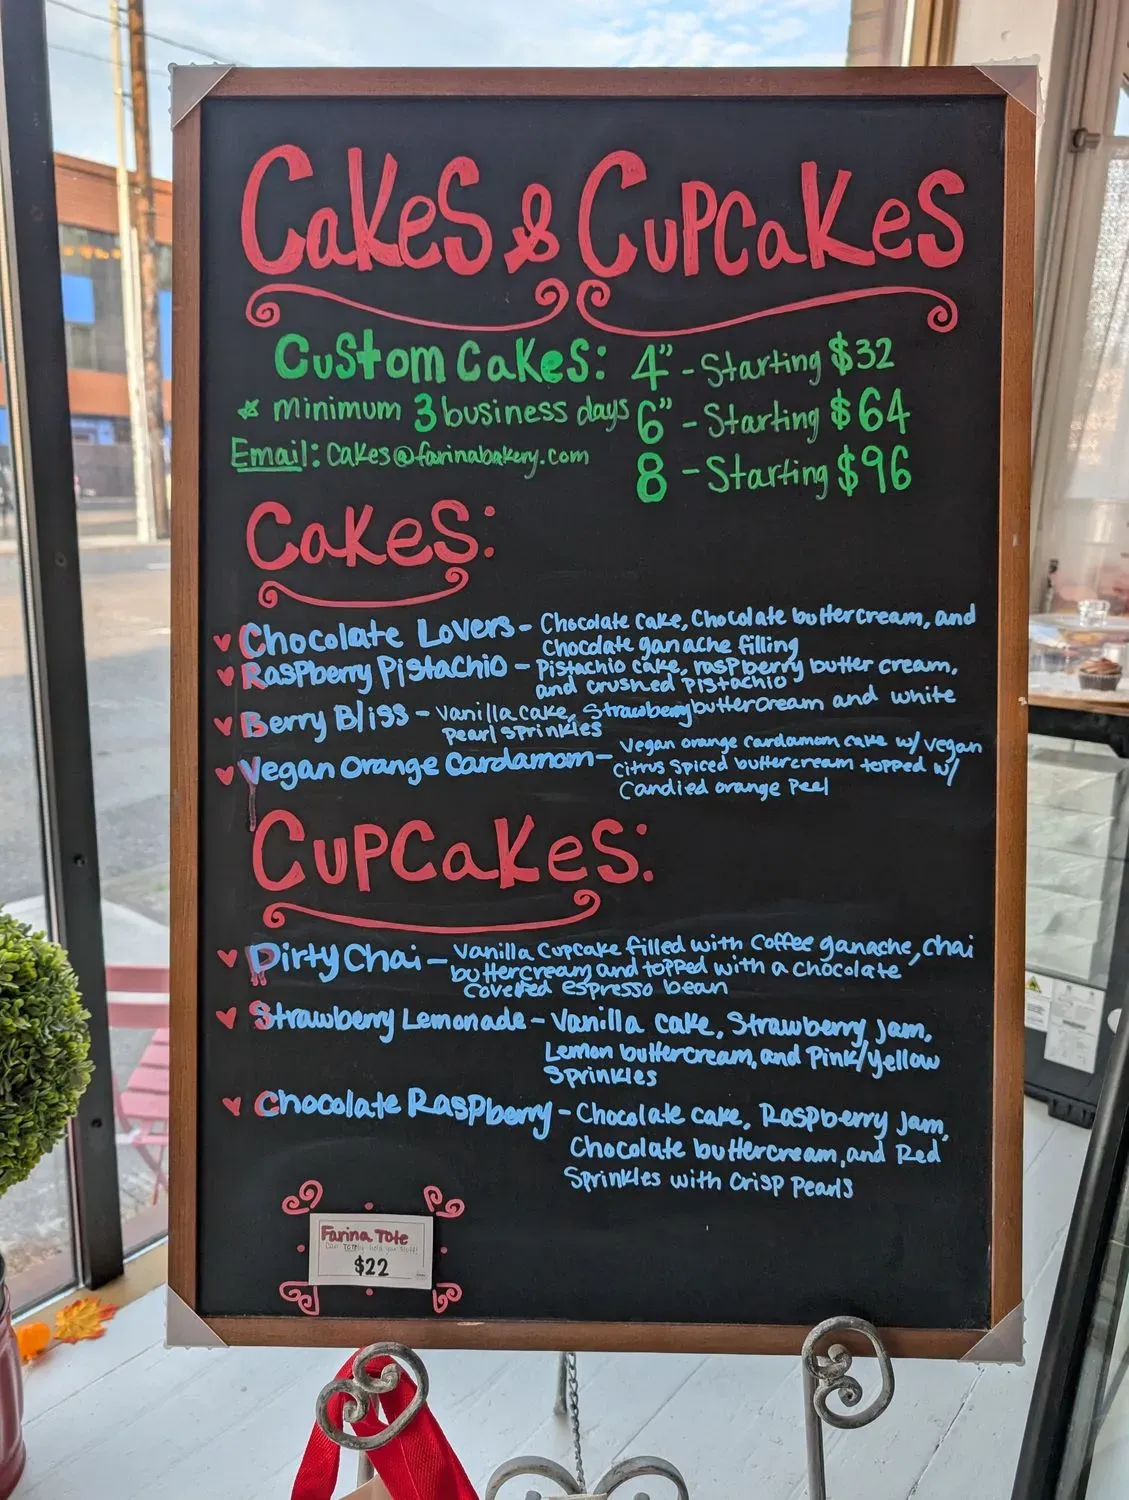 Cakes & Cupcakes
Custom Cakes: 4" - Starting $32
* minimum 3 business days 6" - Starting $64
Email: Cakes@farinabakery.com
8 - Starting $96
Cakes:
♥ Chocolate Lovers - Chocolate cake, Chocolate buttercream, and
Chocolate ganache filling
♥ Raspberry Pistachio - Pistachio cake, raspberry butter cream,
and crushed Pistachio
♥ Berry Bliss - Vanilla cake, Strawberry buttercream and white
pearl sprinkles
♥ Vegan Orange Cardamom - Vegan orange cardamom cake w/ vegan
Citrus spiced buttercream topped w/
Candied orange Peel
Cupcakes:
♥ Dirty Chai - Vanilla Cupcake filled with Coffee ganache, Chai
buttercream, and topped with a chocolate
covered espresso bean
♥ Strawberry Lemonade - Vanilla cake, Strawberry jam,
Lemon buttercream, and Pink/yellow
Sprinkles
♥ Chocolate Raspberry - Chocolate cake, Raspberry Jam,
Chocolate buttercream, and Red
Sprinkles with Crisp Pearls
Farina Tote
Can TOTEly help your stuff!
$22